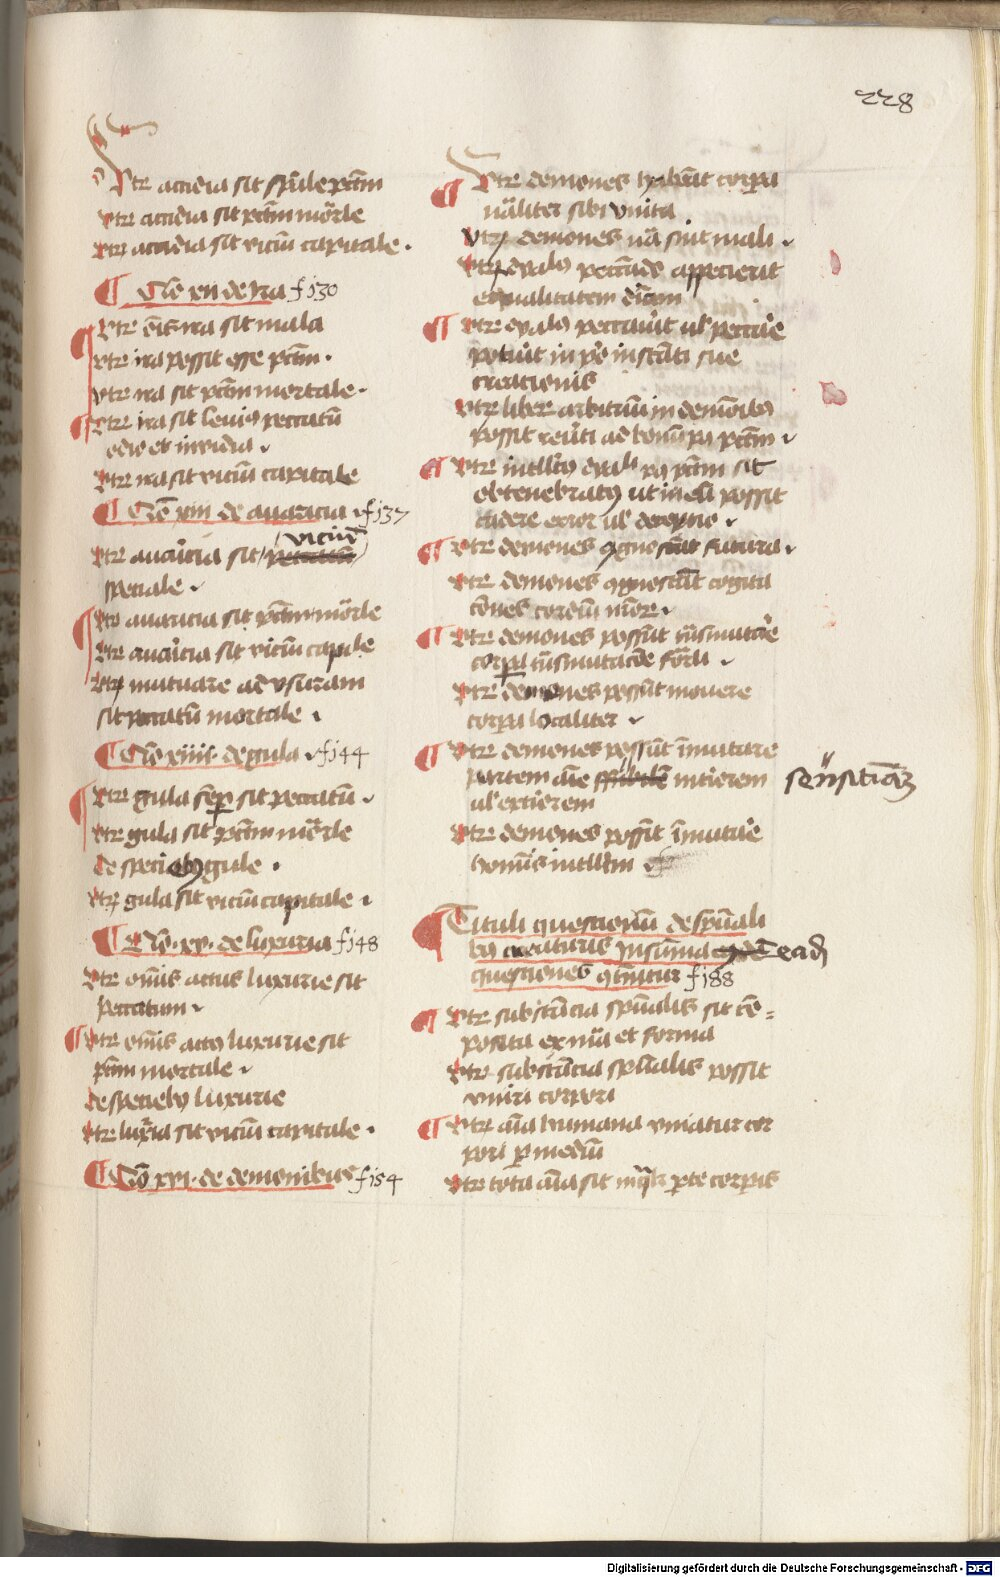 228
Utrum accidia sit spūale pctm
Utrum accidia sit pctm mōrle
Utrum accidia sit viciū capitale .
¶ Qō xii de ira f 130
Utrum oīs ira sit mala
Utrum ira possit esse pctm .
Utrum ira sit pctm mortale .
Utrum ira sit leuius peccatū
odio et inuidia .
Utrum ira sit viciū capitale
¶ Qō xiii de auaricia . f 137
viciū
Utrum auaricia sit peccatū
speciale .
Utrum auaricia sit pctm mōrle
Utrum auaricia sit viciū capitale
Utrum mutuare ad vsuram
sit peccatū mortale .
¶ Qō xiiii . de gula . f 144
Utrum gula semp sit peccatū .
Utrum gula sit pctm mōrle
de speciebus gule .
Utrum gula sit viciū capitale .
¶ Qō . xv . de luxuria f 148
Utrum omīs actus luxurie sit
peccatum .
¶ Utrum omīs actus luxurie sit
pctm mortale .
de speciebus luxurie
Utrum luxuria sit viciū capitale .
¶ Qō xvi . de demonibus f 154
¶ Utrum demones habeāt corpora
nāliter sibi vnita
Utrum demones nā sint mali .
Utrum dyabolus peccando appecierit
equalitatem diuinam
¶ Utrum dyabolus peccauit uel peccare
potuit in primo instanti sue
creationis
Utrum liberum arbitriū in demonibus
possit reuerti ad bonū post pctm .
¶ Utrum intellectus dyaboli post pctm sit
obtenebratus ut in eū possit
cadere error uel deceptio .
¶ Utrum demones cognoscāt futura .
Utrum demones cognoscāt cogita
tiones cordiū nostrorum .
¶ Utrum demones possūt transmutare
corpora transmutatione formali .
Utrum demones possūt mouere
corpora localiter .
¶ Utrum demones possūt īmutare
partem anime interiorem sensitiuam
uel exteriorem
Utrum demones possīt īmutare
hominis intellectum .
¶ Tituli questionum de spūali
bus creaturis in summa eadem
questiones continentur f 188
¶ Utrum substācia spūalis sit cō=
posita ex materia et forma
Utrum substācia spūalis possit
vniri corpori
¶ Utrum aīa humana vniatur cor
pori per mediū
Utrum tota aīa sit in qualibet parte corporis
Digitalisierung gefördert durch die Deutsche Forschungsgemeinschaft - DFG